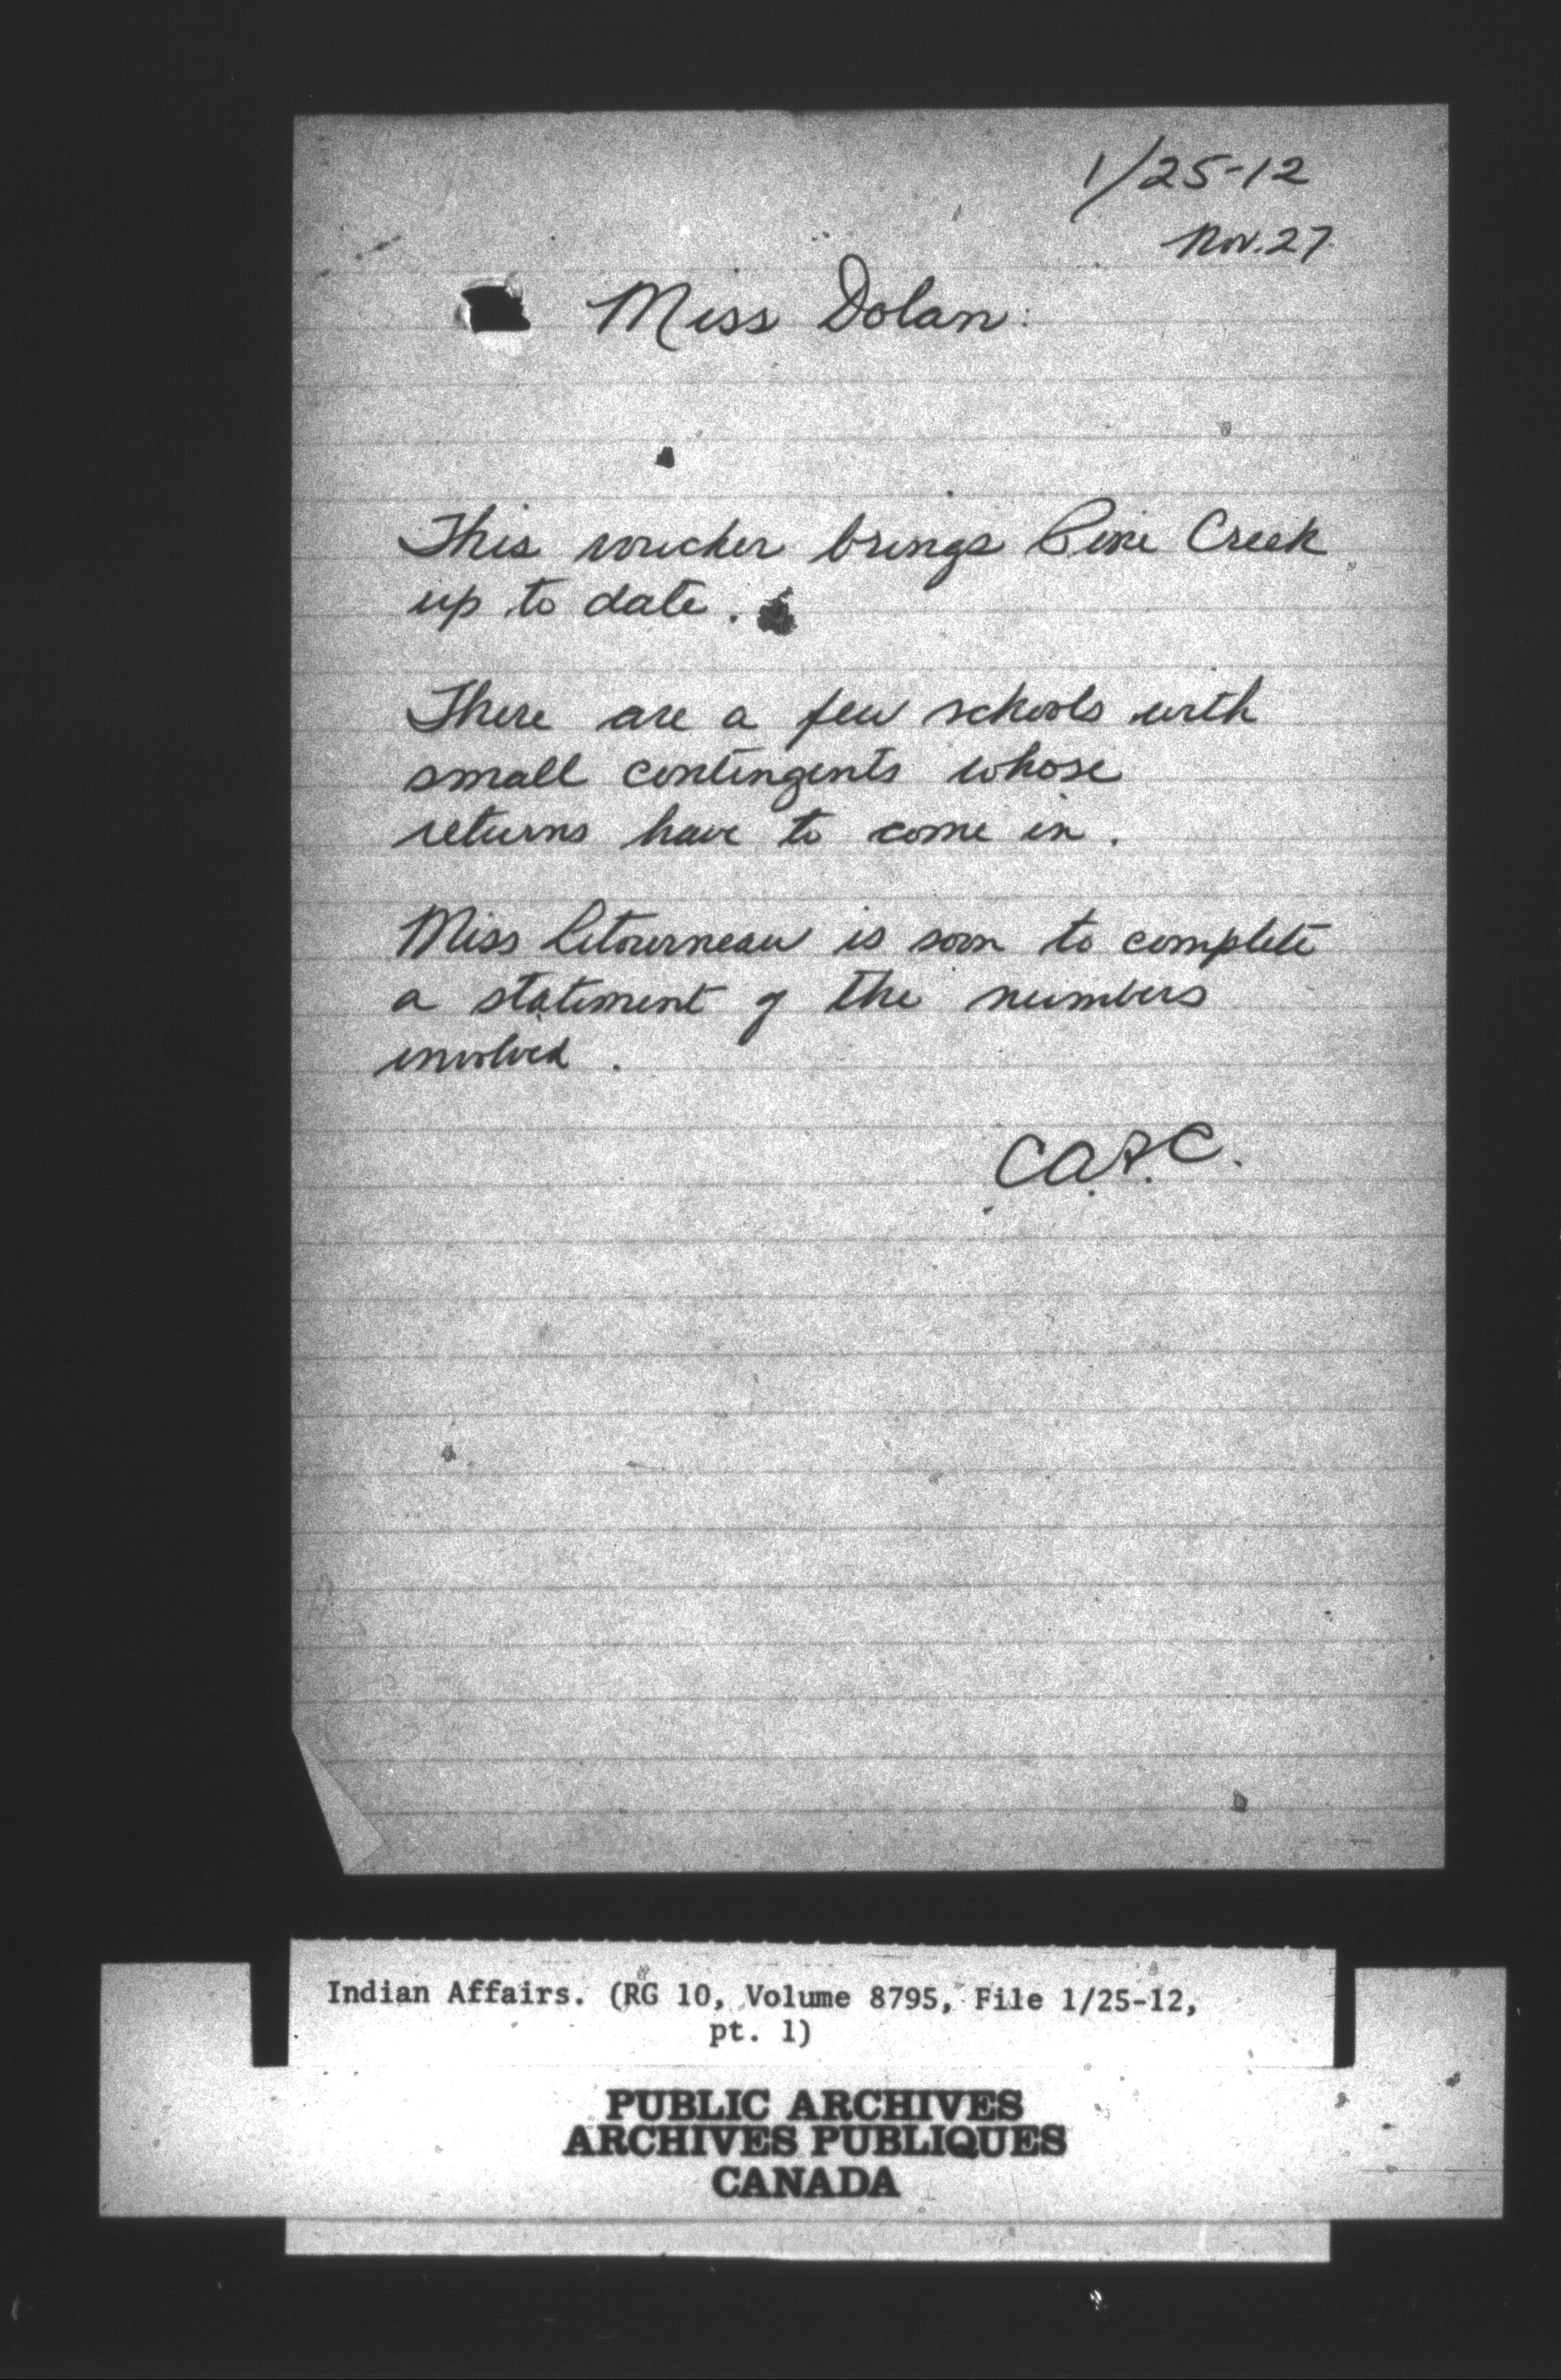 1/25-12
Nov. 27
Miss Dolan:
This voucher brings Pine Creek
up to date.
There are a few schools with
small contingents whose
returns have to come in.
Miss Letourneau is soon to complete
a statement of the numbers
involved.
Indian Affairs. (RG 10, Volume 8795, File 1/25-12,
pt. 1)
PUBLIC ARCHIVES
ARCHIVES PUBLIQUES
CANADA